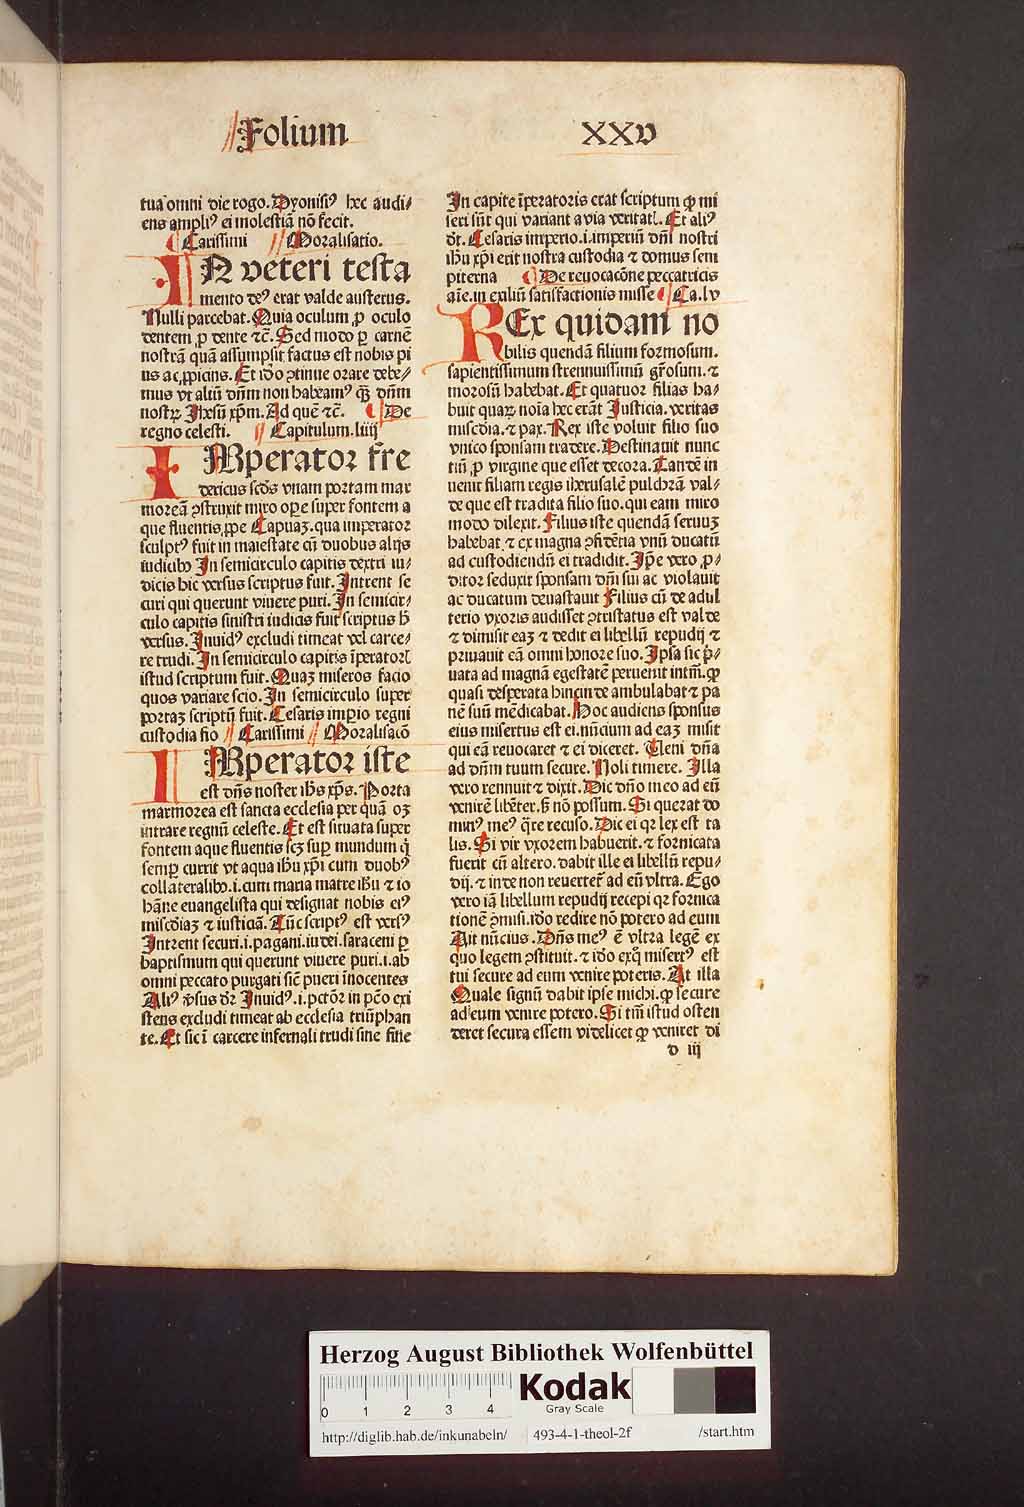 Folium XXV
tua omni die rogo. Dyonisiꝰ hec audi⸗
ens ampliꝰ ei molestiã nõ fecit.
Carissimi Moralisatio.
IN veteri testa
mento deꝰ erat valde austerus.
Nulli parcebat. Quia oculum ꝓ oculo
dentem ꝓ dente ⁊c̃. Sed modo ꝑ carnẽ
nostrã quã assumpsit factus est nobis pi
us ac ꝓpicius. Et iõo ꝯtinue orare debe⸗
mus vt aliũ dñm non habeamꝰ q̃ꝫ dñm
nostrꝫ Jhesũ xp̃m. Ad quẽ ⁊c̃. De
regno celesti. Capitulum. liiij
IMperator fre
dericus scd̃s vnam portam mar
moreã ꝯstruxit miro oꝑe super fontem a
que fluentis ꝓpe Capuaꝫ. qua imperator
sculptꝰ fuit in maiestate cũ duobus alijs
iudicibꝰ In semicirculo capitis dextri iu⸗
dicis hic versus scriptus fuit. Intrent se
curi qui querunt viuere puri. In semicir⸗
culo capitis sinistri iudicis fuit scriptus h̃
versus. Inuidꝰ excludi timeat vel carce⸗
re trudi. In semicirculo capitis ĩperatorꝭ
istud scriptum fuit. Quaꝫ miseros facio
quos variare scio. In semicirculo super
portaꝫ scriptũ fuit. Cesaris imꝑio regni
custodia fio Carissimi Moralisacõ
IMperator iste
est dñs noster ihs̃ xp̃s. Porta
marmorea est sancta ecclesia per quã oꝫ
intrare regnũ celeste. Et est situata super
fontem aque fluentis scꝫ suꝑ mundum q̃
semꝑ currit vt aqua ihũ xp̃i cum duobꝰ
collateralibꝰ .i. cum maria matre ihũ ⁊ io
hãne euangelista qui designat nobis eiꝰ
miscõiaꝫ ⁊ iusticiã. Tũc scriptꝰ est versꝰ
Intrent securi .i. pagani. iudei. saraceni ꝑ
baptismum qui querunt viuere puri .i. ab
omni peccato purgati sic̃ pueri inocentes
Aliꝰ v̾sus dr̃ Inuidꝰ .i. pctõr in pctõ exi
stens excludi timeat ab ecclesia triũphan
te. Et sic ĩ carcere infernali trudi sine fine
In capite ĩperatoris erat scriptum ꝙ mi
seri sũt qui variant a via veritatꝭ. Et aliꝰ
dr̃. Cesaris imperio .i. imperiũ dñi nostri
ihũ xp̃i erit nostra custodia ⁊ domus sem
piterna De reuocacõne peccatricis
aĩe. in exiliũ satisfactionis misse Ca. lv
REx quidam no
bilis quendã filium formosum.
sapientissimum strennuissimũ gr̃osum. ⁊
morosũ habebat. Et quatuor filias ha⸗
buit quaꝝ noĩa hec erãt Justicia. veritas
miscõia. ⁊ pax. Rex iste voluit filio suo
vnico sponsam tradere. Destinauit nunc
tiũ ꝓ virgine que esset decora. Tandẽ in
uenit filiam regis iherusalẽ pulchrã val⸗
de que est tradita filio suo. qui eam miro
modo dilexit. Filius iste quendã seruuꝫ
habebat ⁊ ex magna ꝯfidẽtia vnũ ducatũ
ad custodiendũ ei tradidit. Ip̃e vero ꝓ⸗
ditor seduxit sponsam dñi sui ac violauit
ac ducatum deuastauit Filius cũ de adul
terio vxoris audisset ꝯtristatus est valde
⁊ dimisit eaꝫ ⁊ dedit ei libellũ repudij ⁊
priuauit eã omni honore suo. Ipsa sic p̃⸗
uata ad magnã egestatẽ peruenit intm̃. ꝙ
quasi desperata hincinde ambulabat ⁊ pa
nẽ suũ mẽdicabat. Hoc audiens sponsus
eius misertus est ei. nũcium ad eaꝫ misit
qui eã reuocaret ⁊ ei diceret. Veni dña
ad dñm tuum secure. Noli timere. Illa
vero rennuit ⁊ dixit. Dic dño meo ad eũ
venirẽ libẽter. sꝫ nõ possum. Si querat do
minꝰ meꝰ q̃re recuso. Dic ei qꝛ lex est ta
lis. Si vir vxorem habuerit. ⁊ fornicata
fuerit cũ altero. dabit ille ei libellũ repu⸗
dij. ⁊ inde non reuertet̃ ad eũ vltra. Ego
vero iã libellum repudij recepi qꝛ fornica
tionẽ ꝯmisi. iõo redire nõ potero ad eum
Ait nũcius. Dñs meꝰ ẽ vltra legẽ ex
quo legem ꝯstituit. ⁊ iõo exq̃ misertꝰ est
tui secure ad eum venire poteris. At illa
Quale signũ dabit ipse michi. ꝙ secure
ad eum venire potero. Si tm̃ istud osten
deret secura essem videlicet ꝙ veniret di
d iij
Herzog August Bibliothek Wolfenbüttel
0 1 2 3 4
Kodak
Gray Scale
http://diglib.hab.de/inkunabeln/ 493-4-1-theol-2f /start.htm